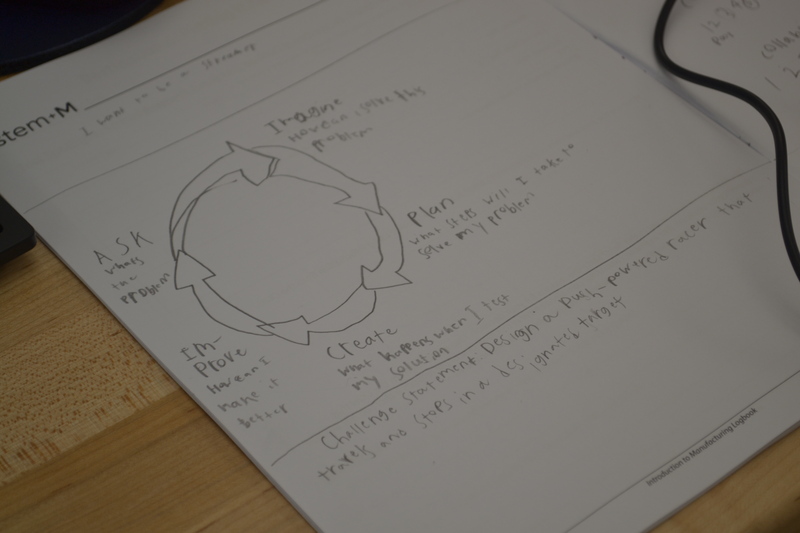 stem+M
I want to be a
Imagine
How can I solve this
problem
Plan
what steps will I take to
solve my problem
ASK
whats
the
problem
IM-
Prove
How can I
make it
better
Create
what happens when I test
my solution
Challenge statement Design a push-powered racer that
travels and stops in a designated target
Introduction to Manufacturing Logbook
1 2 3 4
Pay
1 2